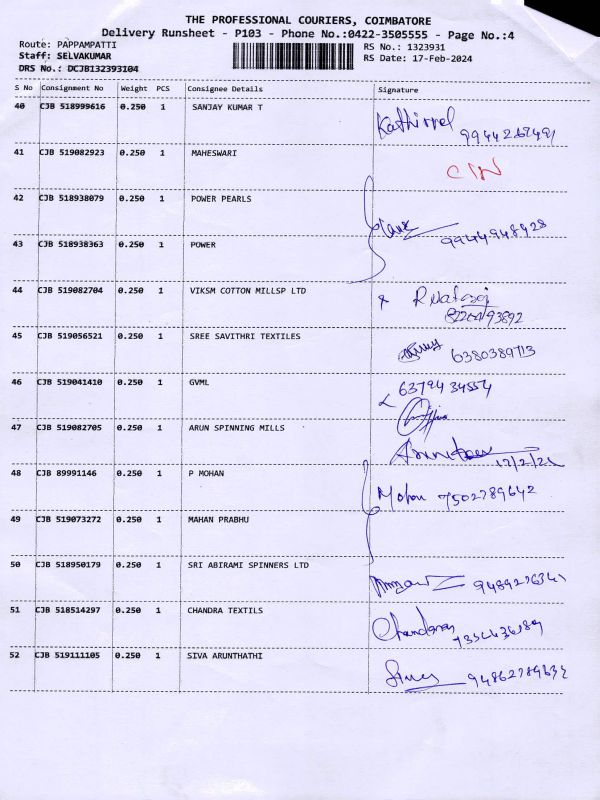 THE PROFESSIONAL COURIERS, COIMBATORE
Delivery Runsheet - P103 - Phone No.:0422-3505555 - Page No.:4
Route: PAPPAMPATTI
RS No.: 1323931
Staff: SELVAKUMAR
RS Date: 17-Feb-2024
DRS No.: DCJB132393104
S No Consignment No Weight PCS Consignee Details Signature
40 CJB 518999616 0.250 1 SANJAY KUMAR T
Kathirvel
41 CJB 519082923 0.250 1 MAHESWARI
42 CJB 518938079 0.250 1 POWER PEARLS
9944948928
43 CJB 518938363 0.250 1 POWER
44 CJB 519082704 0.250 1 VIKSM COTTON MILLSP LTD
45 CJB 519056521 0.250 1 SREE SAVITHRI TEXTILES
6380389713
46 CJB 519041410 0.250 1 GVML
47 CJB 519082705 0.250 1 ARUN SPINNING MILLS
48 CJB 89991146 0.250 1 P MOHAN
Mohan 7502789642
49 CJB 519073272 0.250 1 MAHAN PRABHU
50 CJB 518950179 0.250 1 SRI ABIRAMI SPINNERS LTD
51 CJB 518514297 0.250 1 CHANDRA TEXTILS
52 CJB 519111105 0.250 1 SIVA ARUNTHATHI